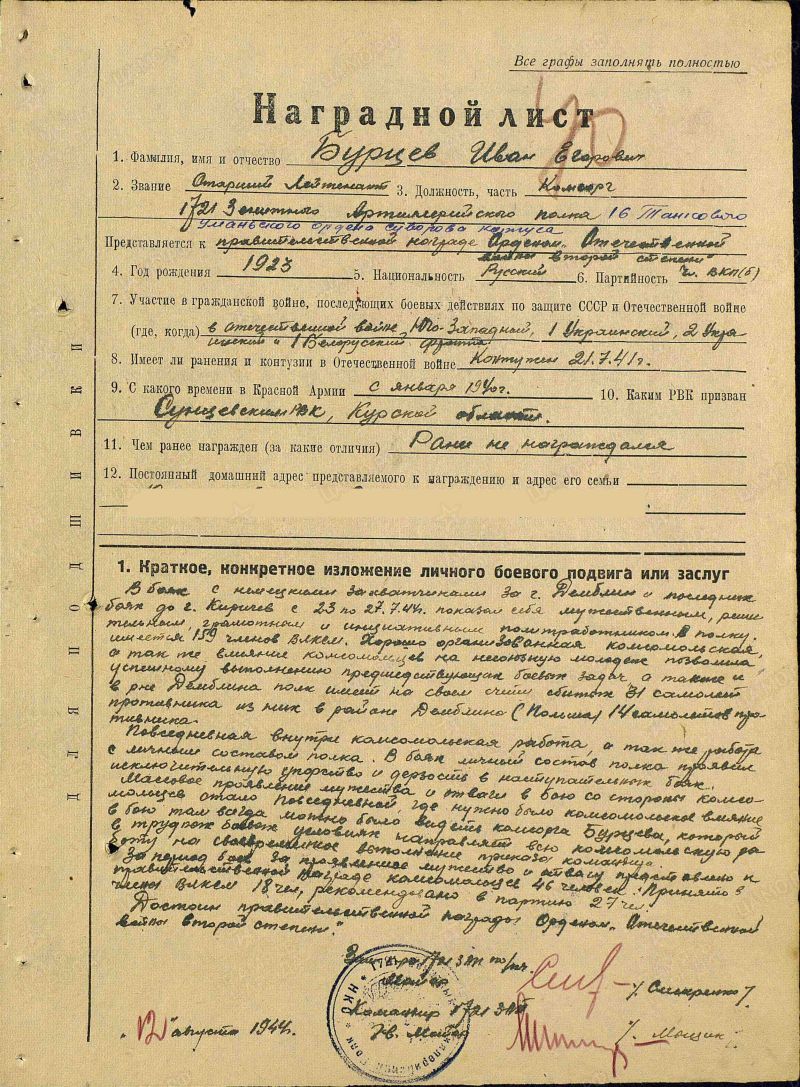 Все графы заполнять полностью
Наградной лист
1. Фамилия, имя и отчество Бурцев Иван Егорович
2. Звание Старший Лейтенант 3. Должность, часть Комсорг
1721 Зенитного Артиллерийского полка 16 Танкового
Уманьского ордена Суворова корпуса
Представляется к правительственной награде Орденом „Отечественной
войны второй степени"
4. Год рождения 1923 5. Национальность Русский 6. Партийность чл. ВКП(б)
7. Участие в гражданской войне, последующих боевых действиях по защите СССР и Отечественной войне
(где, когда) в отечественной войне, Юго-Западной, 1 Украинский, 2 Укра
инский и 1 Белорусский фронта
8. Имеет ли ранения и контузии в Отечественной войне Контужен 21.7.41г.
9. С какого времени в Красной Армии с января 1940г. 10. Каким РВК призван
РВК, Курской области.
11. Чем ранее награжден (за какие отличия) Ране не награждался
12. Постоянный домашний адрес представляемого к награждению и адрес его семьи
ДЛЯ ПОДШИВКИ
1. Краткое, конкретное изложение личного боевого подвига или заслуг
В боях с немецкими захватчиками за г. Демблин и последних
боях до г. с 23 по 27.7.44г. показал себя мужественным, реши
тельным, грамотным и инициативным политработником. В полку
имеется 159 членов ВЛКСМ. Хорошо организованная комсомольская,
а так же влияние комсомольцев на несоюзную молодеж позволила
успешному выполнению предшествующих боевых задач, а также и
в р-не Демблина полк имеет на своем счету сбитых 31 самолет
противника из них в районе Демблина (Польша) 14 самолетов про
тивника.
Повседневная внутри комсомольская работа, а так же работа
с личным составом полка. В боях личный состав полка проявил
исключительную упорство и дерзость в наступательных боях.
Массовое проявление мужества и отваги в бою со стороны комсо
мольцев стало повседневной, где нужно было комсомольское влияние
в бою там всегда можно было видеть комсорга Бурцева, который
в трудных боевых условиях направляет всю комсомольскую ра
боту на своевременное выполнение приказа командира.
За период боев за проявленное мужество и отвагу представлено к
правительственной награде комсомольцев 46 человек. Принято в
члены ВЛКСМ 18 чел, рекомендовано в партию 27 чел.
Достоин правительственной награды Орденом „Отечественной
войны второй степени."
1721 ЗАП по п/ч
Майор
Командир 1721 ЗАП
Майор
"12" августа 1944г.